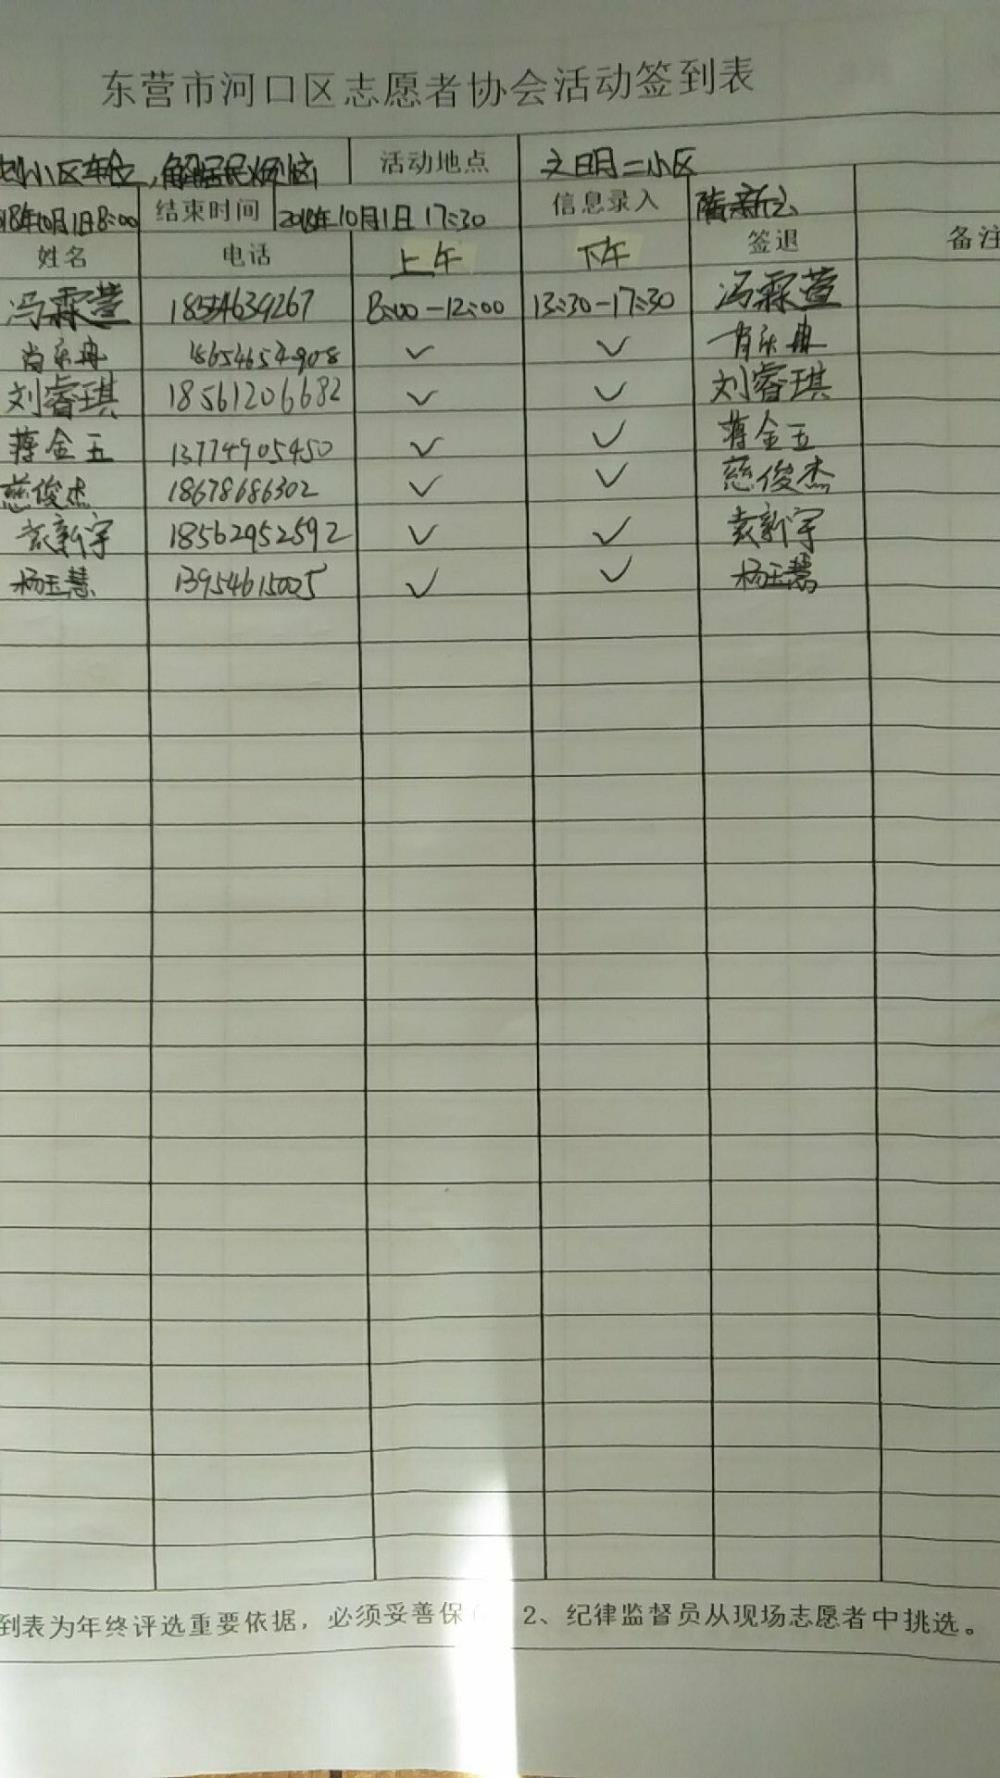 东营市河口区志愿者协会活动签到表
小区车位，解居民烦恼 活动地点 文明二小区
18年10月1日8:00 结束时间 2018年10月1日 17:30 信息录入 新云
姓名 电话 上午 下午 签退 备注
冯霖萱 18554639267 8:00-12:00 13:30-17:30 冯霖萱
肖乐冉 18654654908 ✓ ✓ 肖乐冉
刘睿琪 18561206682 ✓ ✓ 刘睿琪
蒋金五 13774905450 ✓ ✓ 蒋金五
慈俊杰 18678686302 ✓ ✓ 慈俊杰
袁新宇 18562952592 ✓ ✓ 袁新宇
杨玉慧 13954615005 ✓ ✓ 杨玉慧
到表为年终评选重要依据，必须妥善保 2、纪律监督员从现场志愿者中挑选。